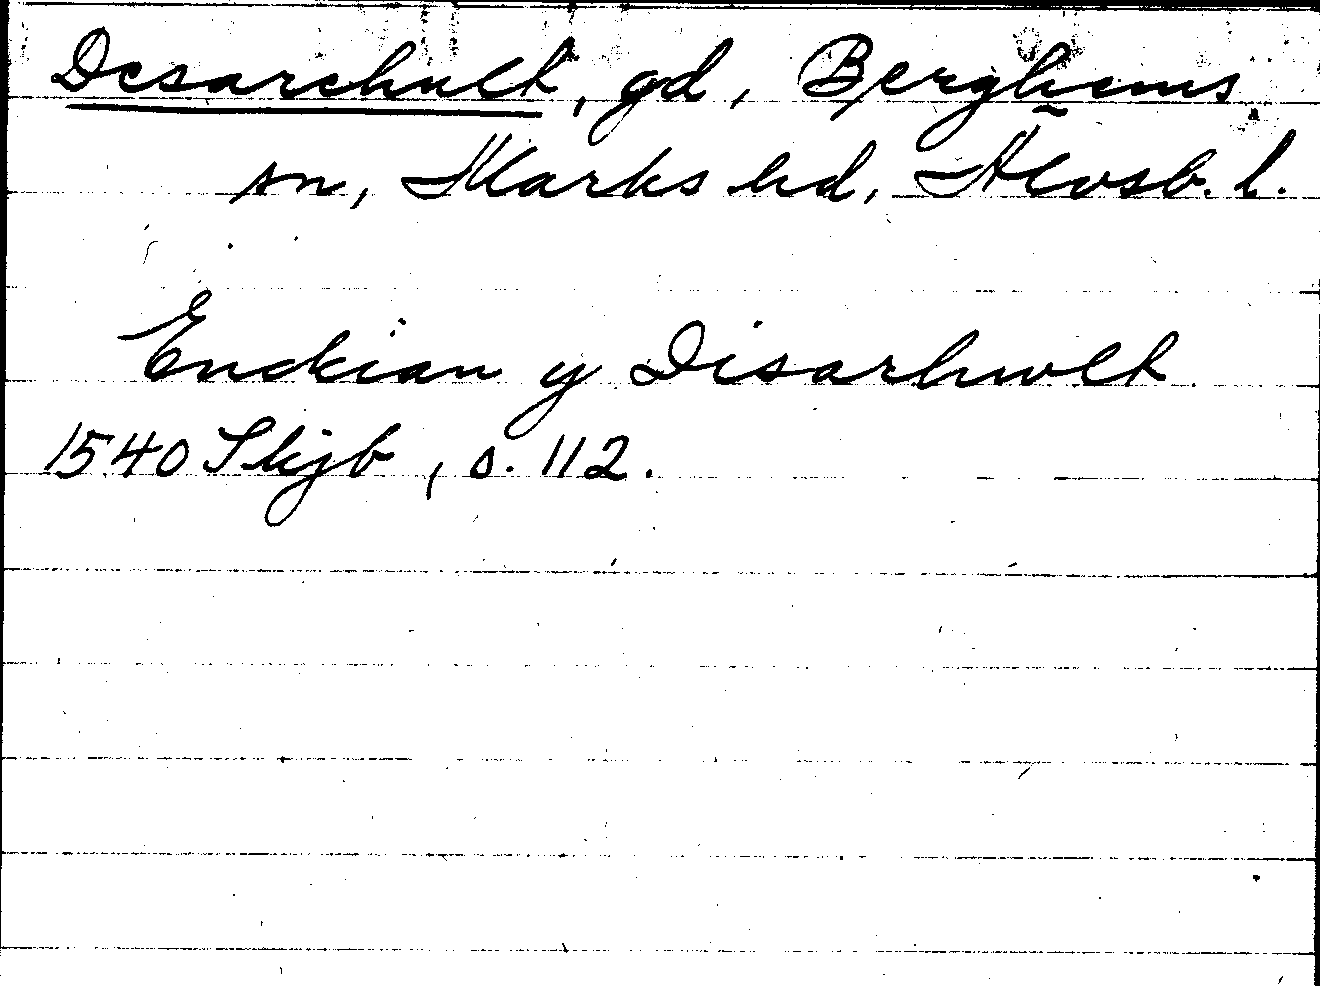 Desarehult, gd, Berghems
sn, Marks hd, Älvsb. l.
Enckian y Disarhwlt
1540 Skjb, s. 112.